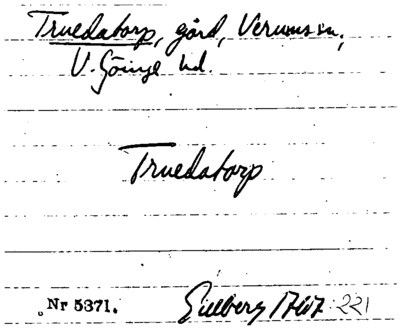 Truedatorp, gård, Verums sn,
V. Göinge hd.
Truedatorp
Nr 5371. Gillberg 1767: 221